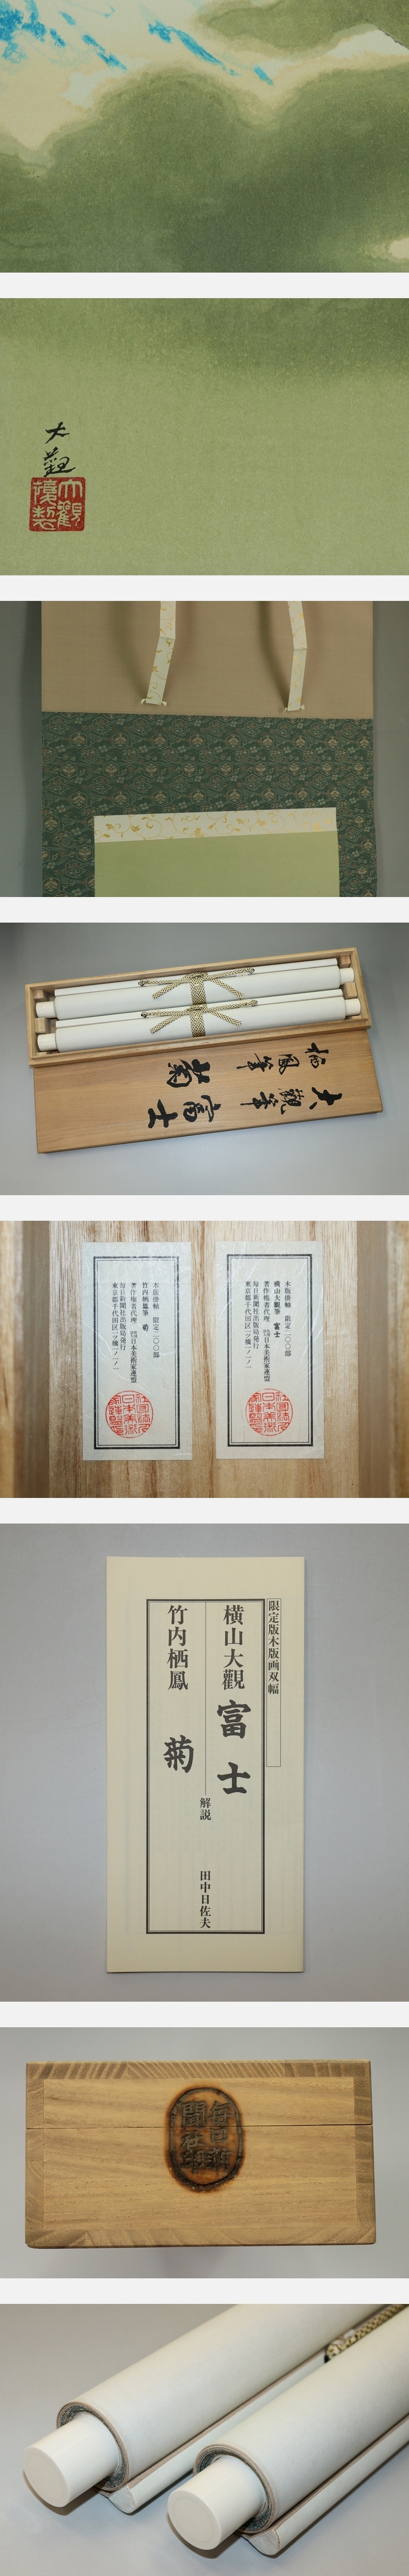 大
観
大観
栖鳳筆 菊
大観筆 富士
木版掛軸 限定二〇〇部
竹内栖鳳筆 菊
著作権者代理 日本美術家連盟
毎日新聞社出版局発行
東京都千代田区一ツ橋一ノ一ノ一
木版掛軸 限定二〇〇部
横山大観筆 富士
著作権者代理 日本美術家連盟
毎日新聞社出版局発行
東京都千代田区一ツ橋一ノ一ノ一
限定版木版画双幅
横山大觀 富士
竹内栖鳳 菊
解説 田中日佐夫
毎日新聞社